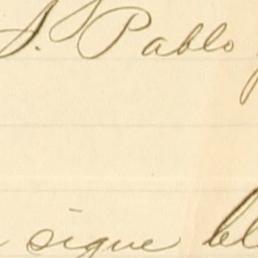 S. Pablo
sigue